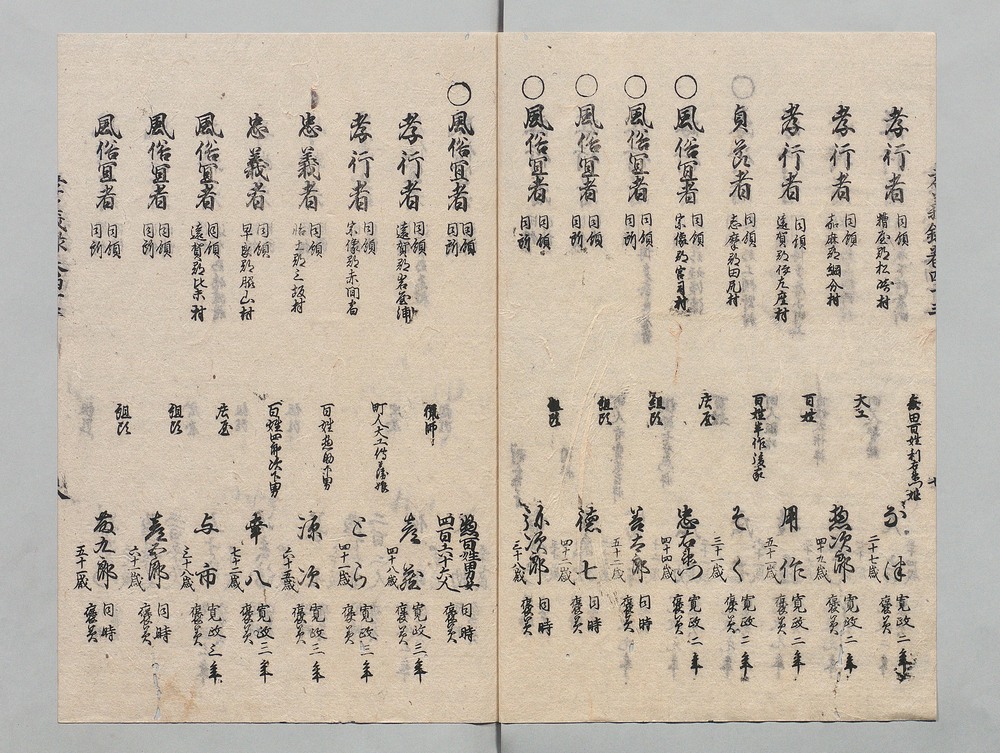 孝行者 同領 糟屋郡松崎村 二十七歳 寛政二年 褒美
孝行者 同領 嘉麻郡綱分村 大工 惣次郎 四十九歳 寛政二年 褒美
孝行者 同領 遠賀郡 村 百姓 用作 寛政二年 褒美
貞節者 同領 志摩郡田尻村 百姓半作後家 そく 三十一歳 寛政二年 褒美
○風俗宜者 同領 宗像郡宮司村 庄屋 忠右衛門 四十四歳 寛政二年 褒美
○風俗宜者 同領 同所 組頭 善太郎 五十二歳 同時 褒美
○風俗宜者 同領 同所 組頭 徳七 四十二歳 同時 褒美
○風俗宜者 同領 同所 組頭 弥次郎 三十八歳 同時 褒美
○風俗宜者 同領 同所 惣百姓男女 四百六十六人 同時 褒美
孝行者 同領 遠賀郡岩屋浦 猟師 四十八歳 寛政三年 褒美
孝行者 同領 宗像郡赤間宿 町人大工 娘 とら 四十一歳 寛政三年 褒美
忠義者 同領 怡土郡三坂村 百姓惣助下男 源次 寛政三年 褒美
忠義者 同領 早良郡脇山村 百姓四郎次下男 幸八 七十二歳 寛政三年 褒美
風俗宜者 同領 遠賀郡 村 庄屋 与市 三十八歳 寛政三年 褒美
風俗宜者 同領 同所 組頭 六十一歳 同時 褒美
風俗宜者 同領 同所 組頭 九郎 五十一歳 同時 褒美